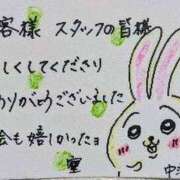 客様 スタッフの皆様
しくしてくださり
ありがとうございました
会も嬉しかったョ
聖
中